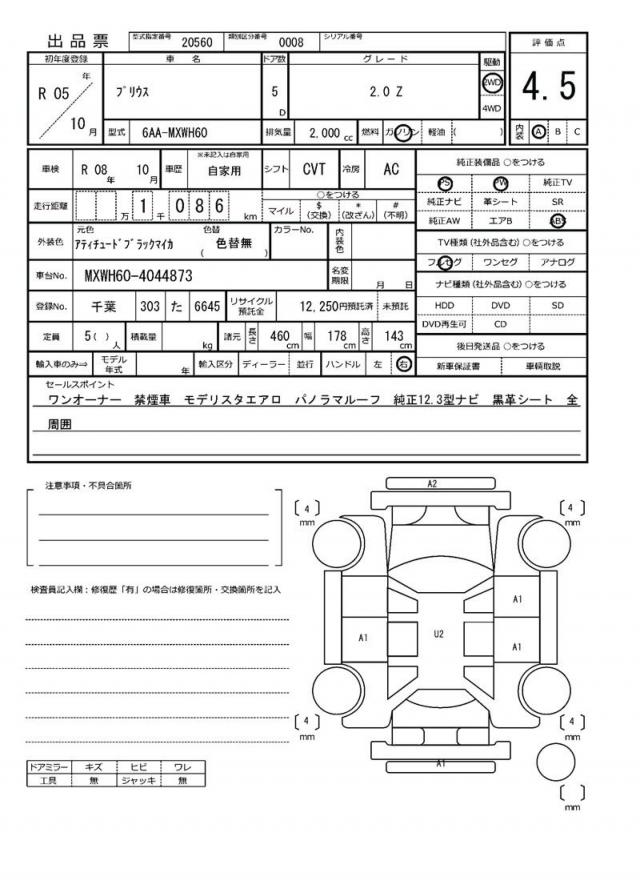 出品票 型式指定番号 20560 類別区分番号 0008 シリアル番号
評価点
4.5
内装 A B C
初年度登録 車名 ドア数 グレード 駆動
R 05 年 10 月 プリウス 5 D 2.0 Z 2WD 4WD
型式 6AA-MXWH60 排気量 2,000 cc 燃料 ガソリン 軽油 ( )
車検 R 08 年 10 月 車歴 ※未記入は自家用 自家用 シフト CVT 冷房 AC
走行距離 万 1 千 0 8 6 km ○をつける マイル $ (交換) * (改ざん) # (不明)
外装色 元色 アティチュードブラックマイカ 色替 ( 色替無 ) カラーNo. 内装色
車台No. MXWH60-4044873 名変期限 月 日
登録No. 千葉 303 た 6645 リサイクル預託金 12,250円預託済 未預託
定員 5( ) 人 積載量 kg 諸元 長さ 460 cm 幅 178 cm 高さ 143 cm
輸入車のみ⇒ モデル年式 年 輸入区分 ディーラー 並行 ハンドル 左 右
純正装備品 ○をつける
PS PW 純正TV
純正ナビ 革シート SR
純正AW エアB ABS
TV種類(社外品含む) ○をつける
フルセグ ワンセグ アナログ
ナビ種類(社外品含む) ○をつける
HDD DVD SD
DVD再生可 CD
後日発送品 ○をつける
新車保証書 車輌取説
セールスポイント
ワンオーナー 禁煙車 モデリスタエアロ パノラマルーフ 純正12.3型ナビ 黒革シート 全
周囲
注意事項・不具合箇所
検査員記入欄：修復歴「有」の場合は修復箇所・交換箇所を記入
ドアミラー キズ ヒビ ワレ
工具 無 ジャッキ 無
A2
[ 4 ] mm
[ 4 ] mm
A1
A1 U2 A1
[ 4 ] mm
[ 4 ] mm
A1
[ ] mm